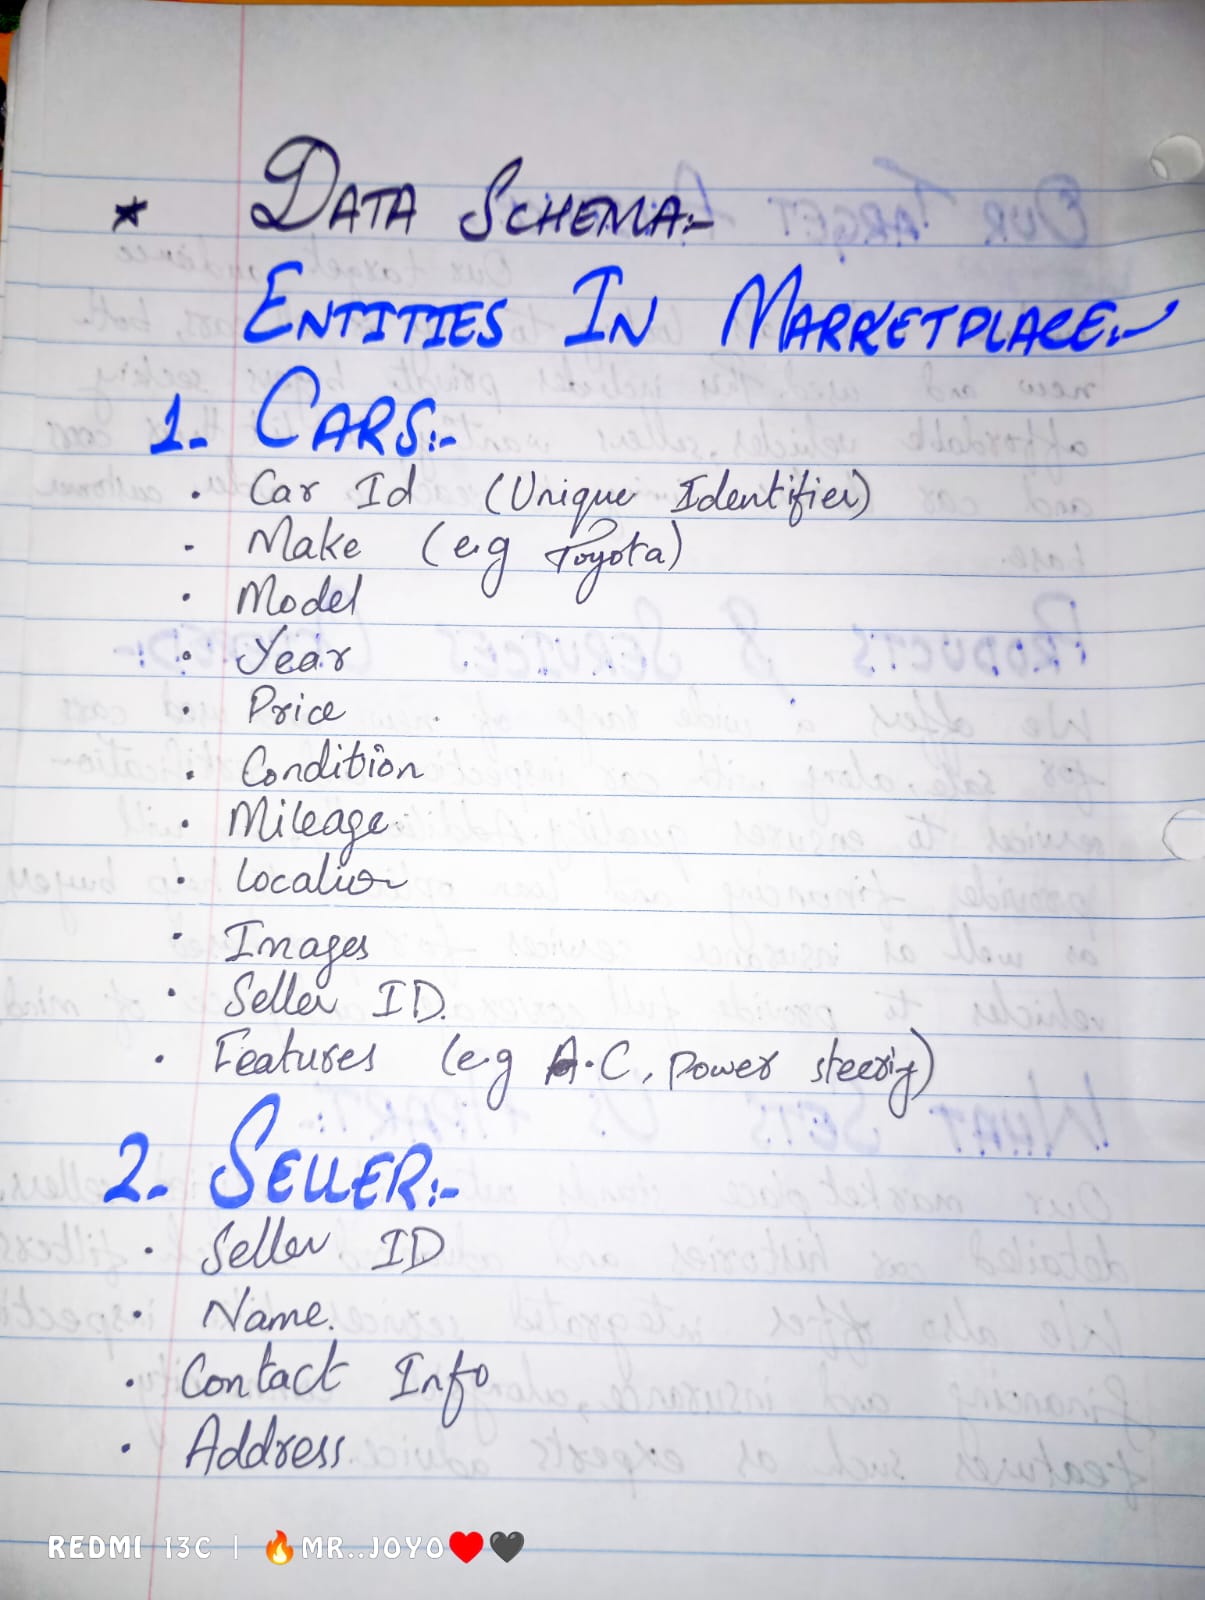 * DATA SCHEMA:-
ENTITIES IN MARKETPLACE:-
1- CARS:-
• Car Id (Unique Identifier)
• Make (e.g Toyota)
• Model
• Year
• Price
• Condition
• Mileage
• Location
• Images
• Seller ID.
• Features (e.g A.C, Power steerig)
2- SELLER:-
• Seller ID
• Name.
• Contact Info
• Address.
REDMI 13C | 🔥MR..JOYO❤️🖤